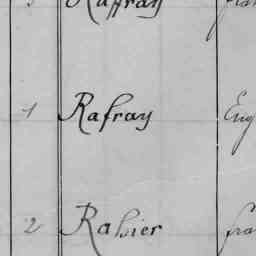 Raffray
1 Rafray Eug
2 Rahier fra